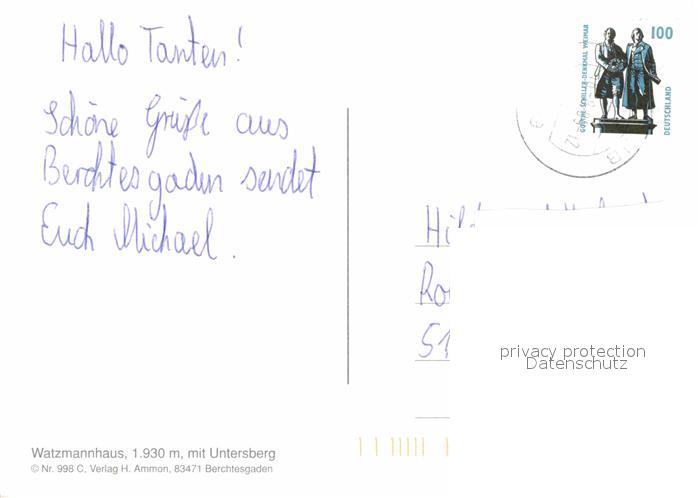 Hallo Tanten!
Schöne Grüße aus
Berchtesgaden sendet
Euch Michael.
GOETHE-SCHILLER-DENKMAL WEIMAR
100
DEUTSCHLAND
Hi
Ro
51
privacy protection
Datenschutz
Watzmannhaus, 1.930 m, mit Untersberg
© Nr. 998 C, Verlag H. Ammon, 83471 Berchtesgaden